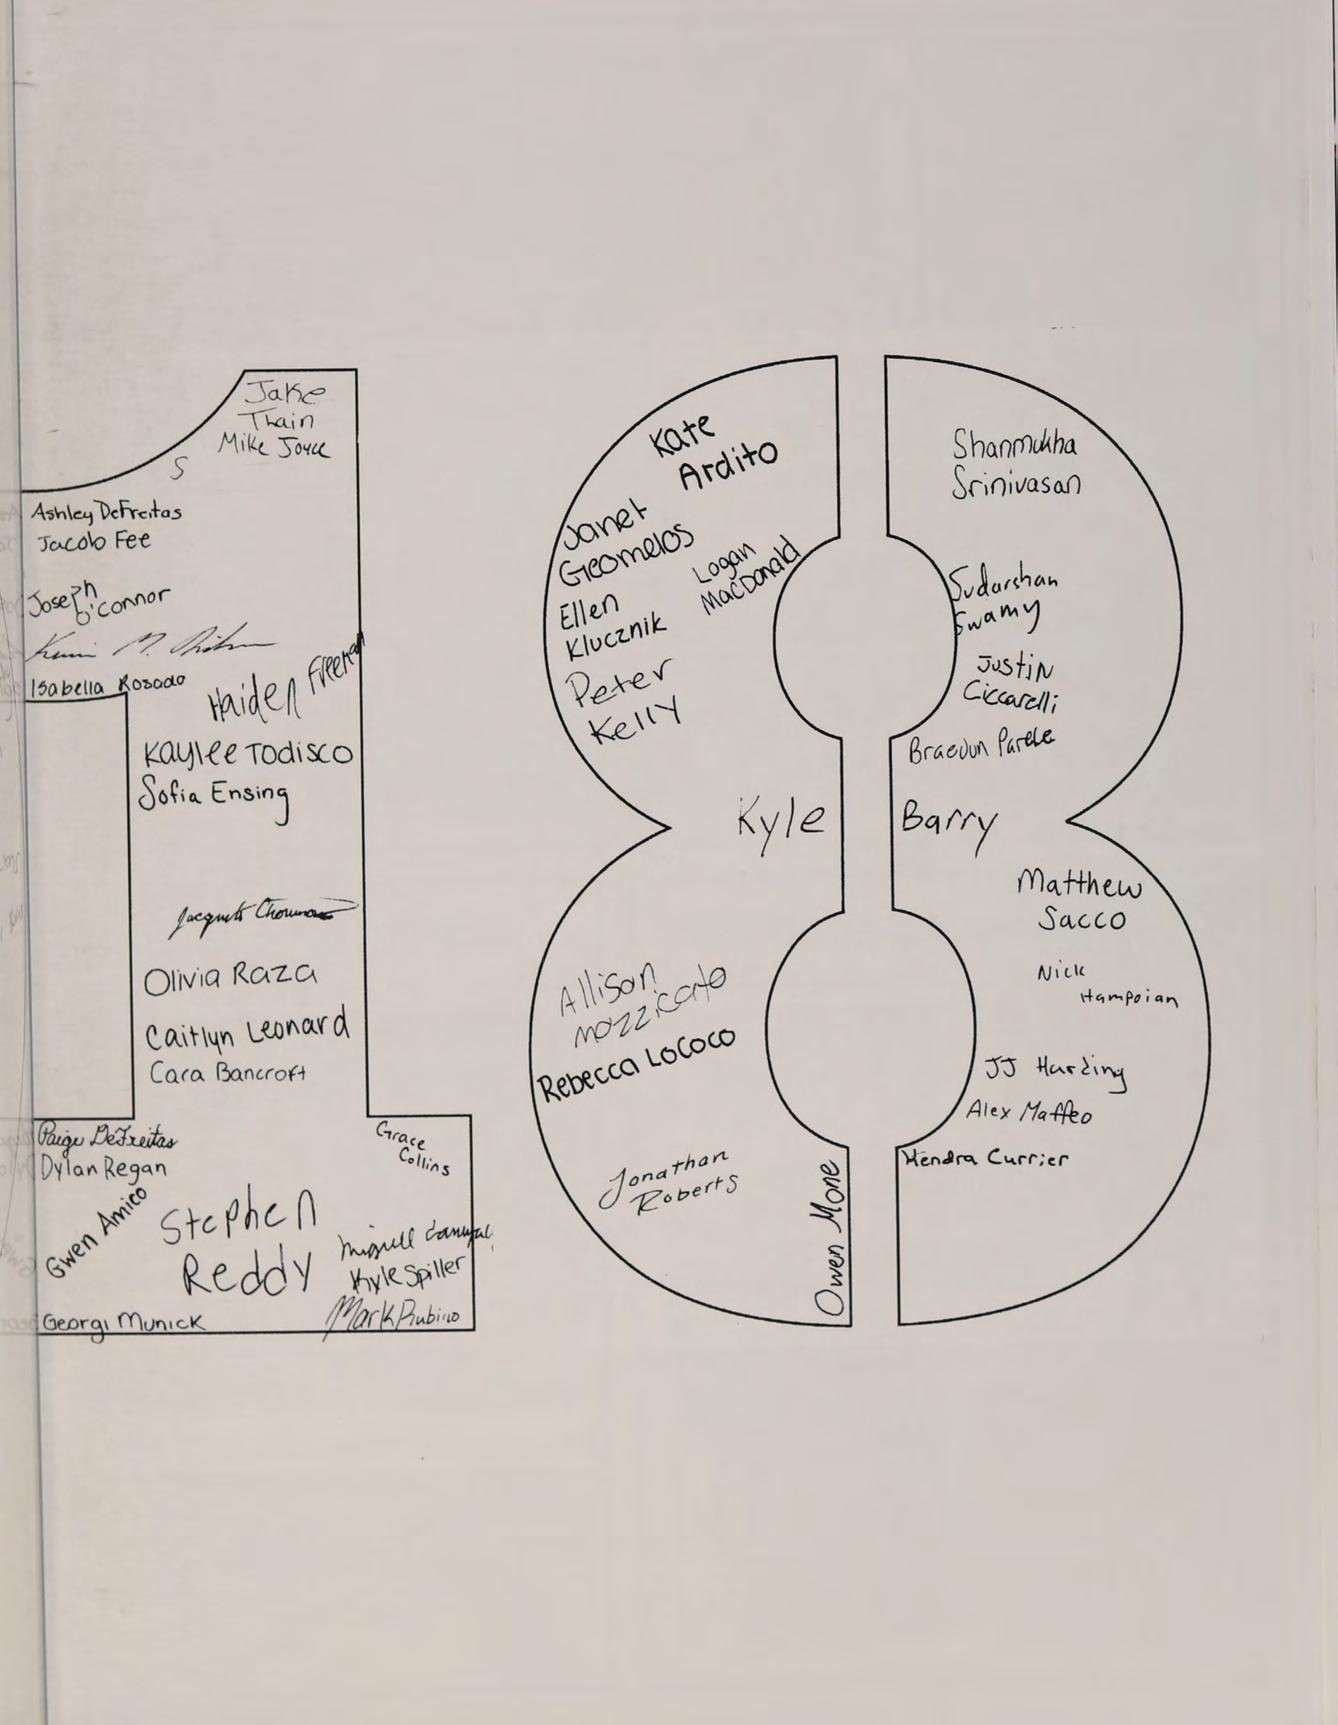 Jake
Thain
Mike Joyce
S
Ashley DeFreitas
Jacob Fee
Joseph
O'Connor
M.
Isabella Rosado
Haiden Freeman
Kaylee Todisco
Sofia Ensing
Olivia Raza
Caitlyn Leonard
Cara Bancroft
Paige DeFreitas
Dylan Regan
Gwen Amico
Stephen
Reddy
Georgi Munick
Grace
Collins
Kyle Spiller
Mark Rubino
Kate
Ardito
Janet
Geomelos
Logan
MacDonald
Ellen
Klucznik
Peter
Kelly
Kyle Barry
Allison
Mozzicato
Rebecca LoCoco
Jonathan
Roberts
Owen Mone
Shanmukha
Srinivasan
Sudarshan
Swamy
Justin
Ciccarelli
Matthew
Sacco
Nick
Hampoian
JJ Harding
Alex Maffeo
Kendra Currier